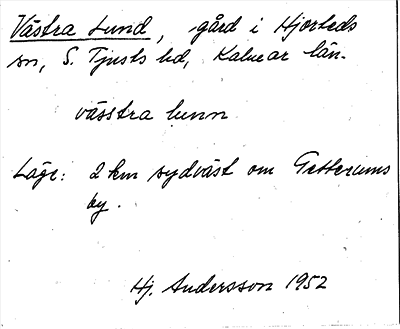 Västra Lund, gård i Hjorteds
sn, S. Tjusts hd, Kalmar län.
västra lunn
Läge: 2 km sydväst om Getterums
by.
Hj. Andersson 1952